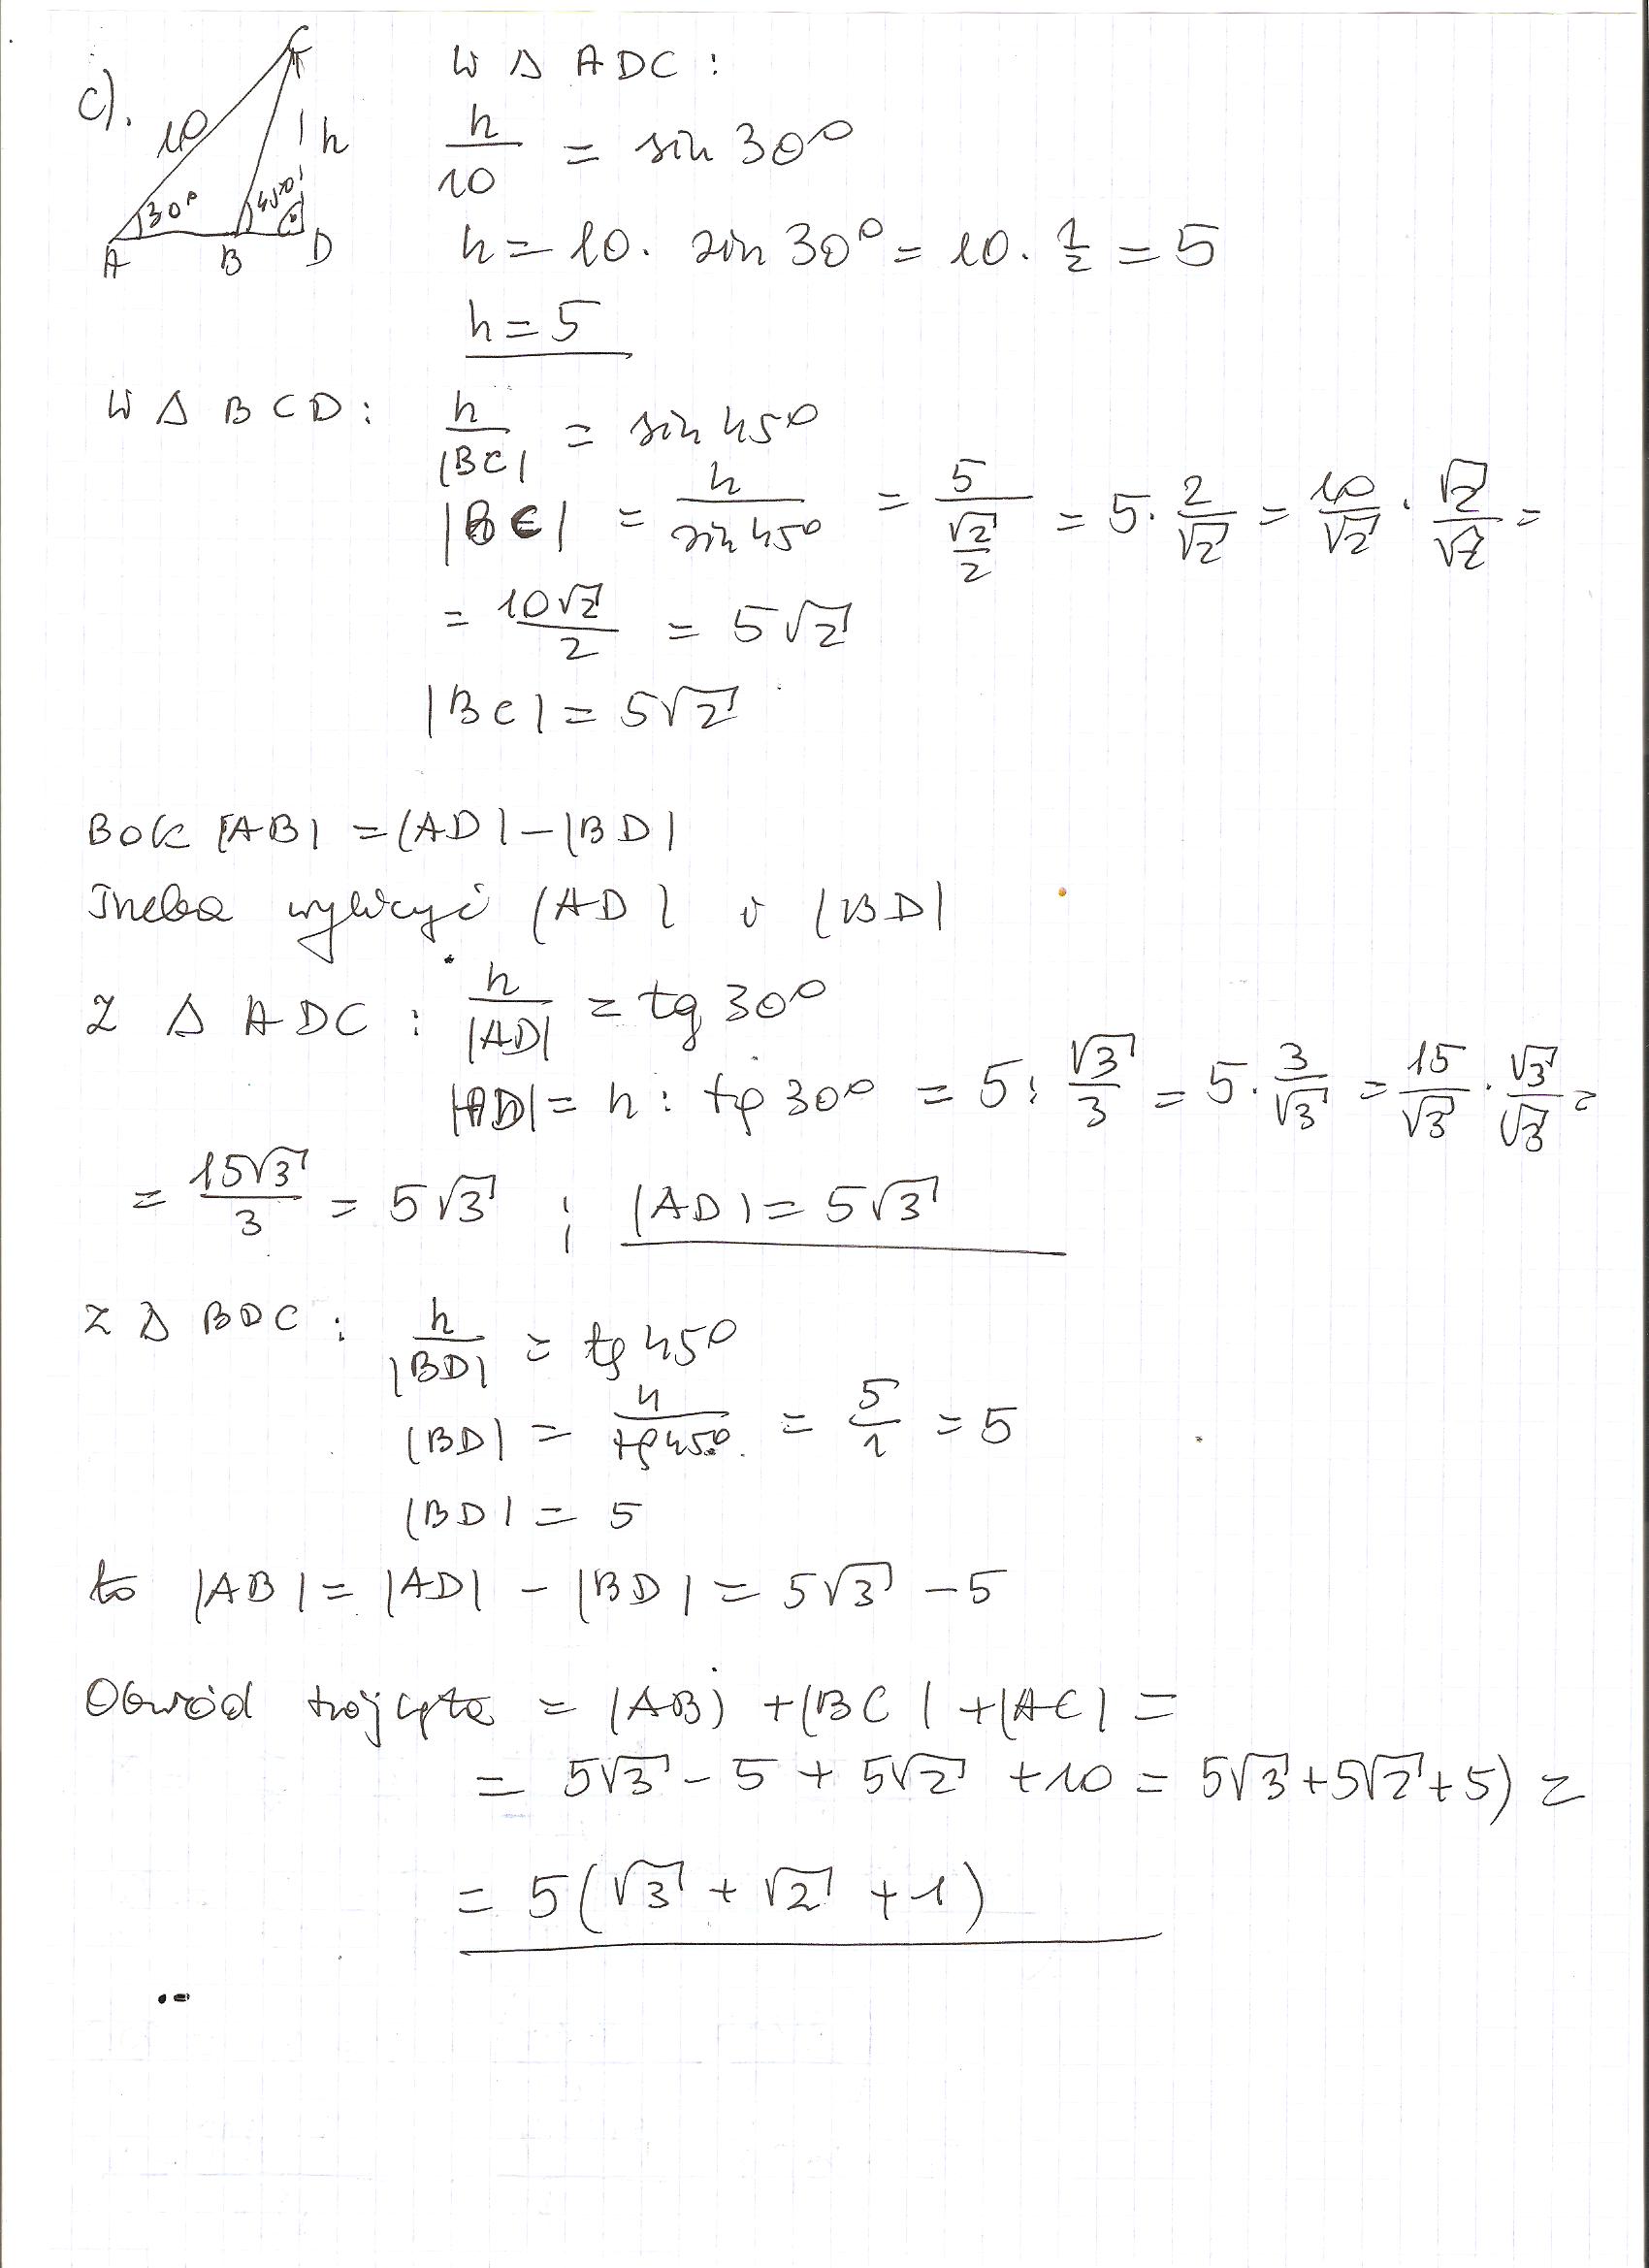 c).
C
10
h
30°
45°
A B D
W Δ ADC :
h/10 = sin 30°
h = 10 · sin 30° = 10 · 1/2 = 5
h = 5
W Δ BCD : h/|BC| = sin 45°
|BC| = h/sin 45° = 5/(√2/2) = 5 · 2/√2 = 10/√2 · √2/√2 =
= 10√2/2 = 5√2
|BC| = 5√2
Bok |AB| = |AD| - |BD|
Trzeba wyliczyć |AD| i |BD|
Z Δ ADC : h/|AD| = tg 30°
|AD| = h : tg 30° = 5 : √3/3 = 5 · 3/√3 = 15/√3 · √3/√3 =
= 15√3/3 = 5√3 ; |AD| = 5√3
Z Δ BDC : h/|BD| = tg 45°
|BD| = h/tg 45° = 5/1 = 5
|BD| = 5
to |AB| = |AD| - |BD| = 5√3 - 5
Obwód trójkąta = |AB| + |BC| + |AC| =
= 5√3 - 5 + 5√2 + 10 = 5√3 + 5√2 + 5) =
= 5(√3 + √2 + 1)